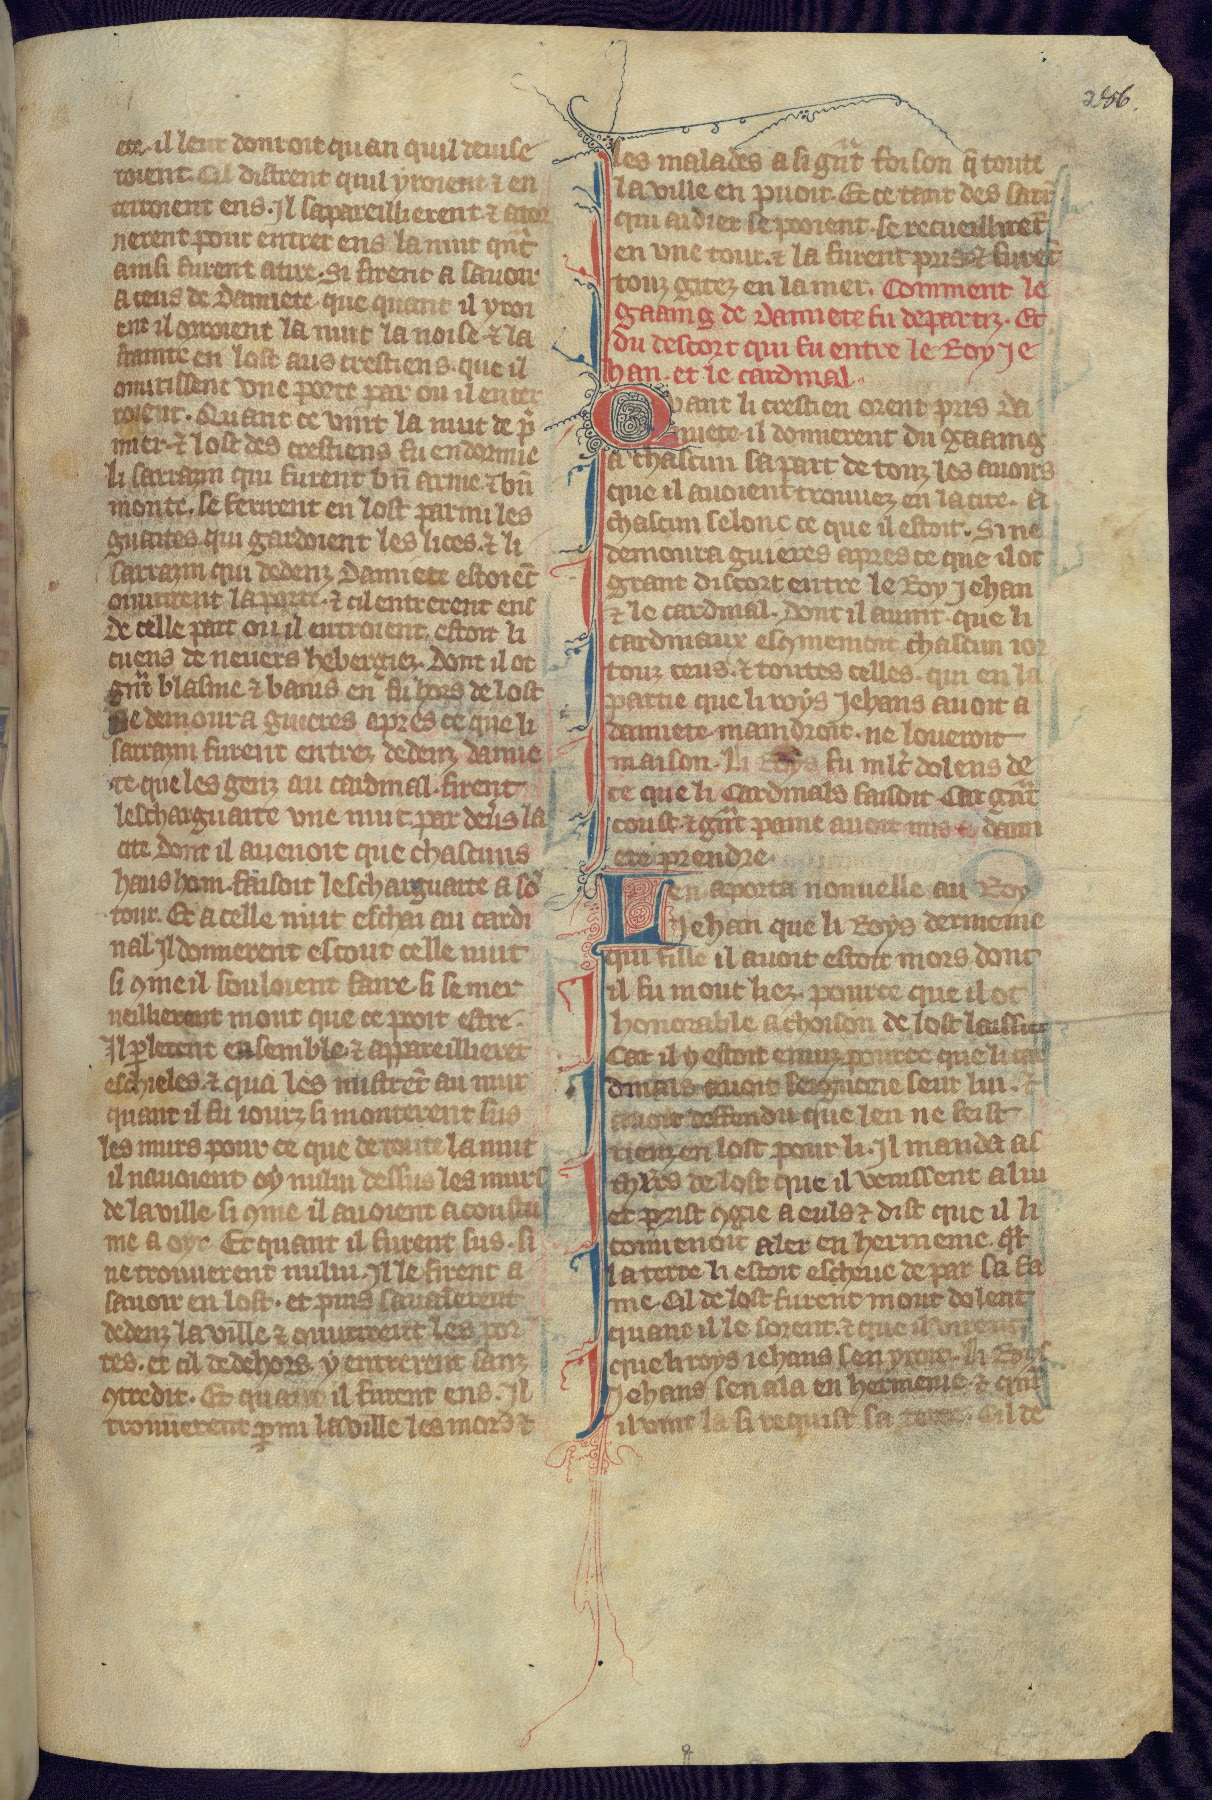 286.
ete. il leur donroit quan quil deuise
roient. Cil distrent quil yroient ⁊ en
terroient ens. Il sapareillierent ⁊ ator
nerent pour entrer ens la nuit qn̄t
ainsi furent atire. Si firent a sauoir
a ceus de Damiete. que quant il yroi
ent il orroient la nuit la noise ⁊ la
en lost aus crestiens. que il
ouurissent vne porte par ou il enter
roient. Quant ce vint la nuit de p̄
mier ⁊ lost des crestiens fu endormie
li sarrazin qui furent bn̄ arme ⁊ bn̄
monte. se ferirent en lost parmi les
guaites qui gardoient les lices. ⁊ li
sarrazin qui dedenz Damiete estoiēt
ouurirent la porte. ⁊ cil entrerent ens
De celle part ou il entroient. estoit li
cuens de neuers hebergiez. Dont il ot
gn̄t blasme ⁊ banis en fu hors de lost
Ne demoura guieres apres ce que li
sarrazin furent entrez dedenz damie
te. que les genz au cardinal. firent
lescharguaite vne nuit. par deūs la
cite. Dont il auenoit que chascuns
haus hom. faisoit lescharguaite a sō
tour. Et a celle nuit eschai au cardi
nal. Il donnerent escout celle nuit
si ꝯme il souloient faire. si se mer
ueillierent mout que ce pooit estre.
Il ꝑlerent ensemble ⁊ appareillierēt
eschieles. ⁊ qua les mistrēt au mur
quant il fu iourz si monterent sus
les murs pour ce que de toute la nuit
il nauoient oy nului dessus les murs
de la ville. si ꝯme il auoient acoustu
me a oyr. Et quant il furent sus. si
ne trouuerent nului. Il le firent a
sauoir en lost. et puis saualerent
dedenz la ville ⁊ ouurirent les por
tes. et cil dedehors. y entrerent sanz
ꝯtredit. Et quant il furent ens. Il
trouuerent ꝑmi la ville les mors ⁊
les malades a si gn̄t foison q̄ toute
la ville en puoit. Et ce tant des sarr̄
qui aidier se pooient. se recueillirēt
en vne tour. ⁊ la furent pris ⁊ furēt
touz gitez en la mer. Comment le
gaaing de Damiete fu departiz. Et
du descort qui fu entre le Roy Je
han. et le cardinal.
Quant li crestien orent pris da
miete. il donnerent du gaaing
a chascun sa part de touz les auoirs
que il auoient trouuez en la cite. A
chascun selonc ce que il estoit. Si ne
demoura guieres apres ce que il ot
grant discort entre le Roy Jehan
⁊ le cardinal. Dont il auint. que li
cardinaux eschmenioit chascun ior
touz ceus. ⁊ toutes celles. qui en la
partie que li roys Jehans auoit a
damiete. maindroit. ne loueroit
maison. Li Roys fu ml̄t dolens de
ce que li Cardinals faisoit. Car gn̄t
coust. ⁊ gn̄t paine auoit mis a dami
ete prendre.
Len aporta nouuelle au Roy
Jehan que li Roys dermenie
qui fille il auoit estoit mors. dont
il fu mout liez. pource que il ot
honorable achoison de lost laissier
Car il y estoit ennuiz. pource que li car
dinals auoit seignorie seur lui. ⁊
auoit deffendu que len ne feist
riens en lost pour li. Il manda as
chlr̄s de lost que il venissent a lui
et prist ꝯgie a euls ⁊ dist que il li
conuenoit aler en hermenie. q̄r
la terre li estoit escheue de par sa fa
me. Cil de lost furent mout dolent
quant il le sorent. ⁊ que il virent
que li roys iehans sen yroit. Li Roys
Jehans sen ala en hermenie ⁊ qn̄t
il vint la si requist sa terre. Cil de